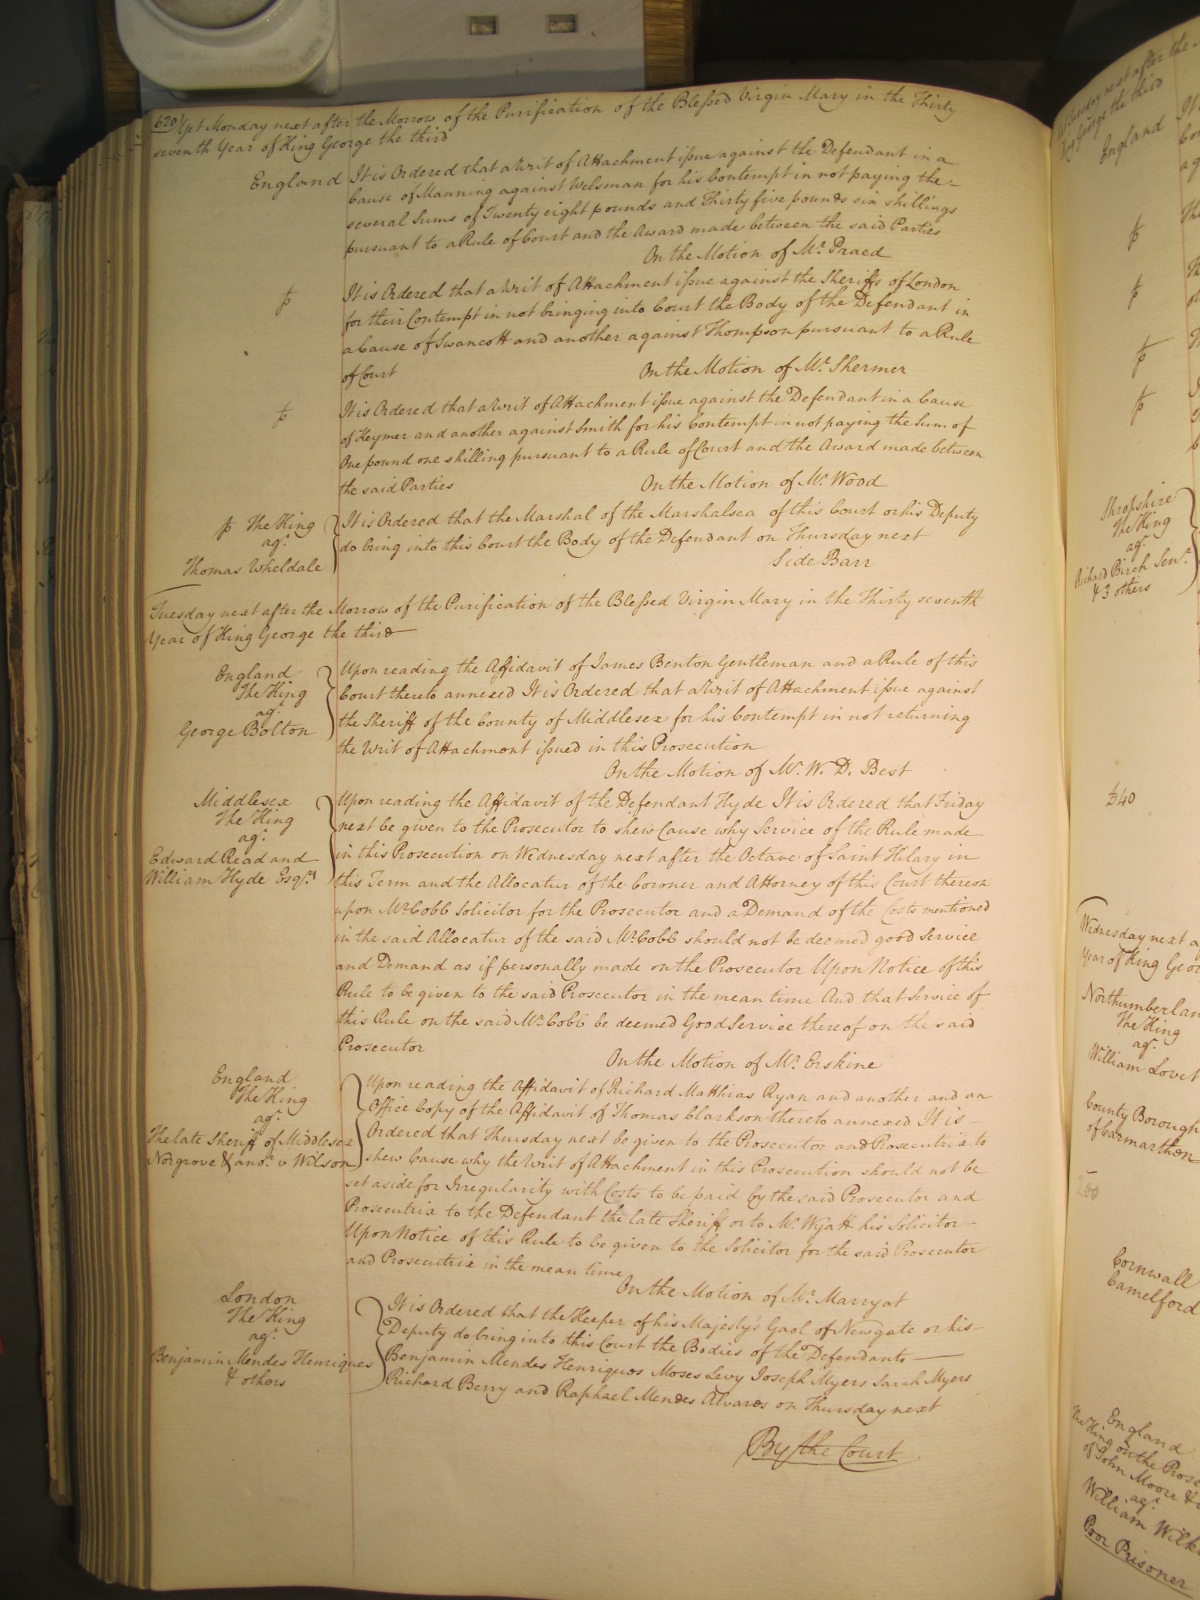 620 Yet Monday next after the Morrow of the Purification of the Blessed Virgin Mary in the Thirty
seventh Year of King George the third
England It is Ordered that a Writ of Attachment issue against the Defendant in a
Cause of Manning against Welsman for his Contempt in not paying the
several Sums of Twenty eight pounds and Thirty five pounds six shillings
pursuant to a Rule of Court and the Award made between the said Parties
On the Motion of Mr. Praed
It is Ordered that a Writ of Attachment issue against the Sheriffs of London
for their Contempt in not bringing into Court the Body of the Defendant in
a Cause of Swancott and another against Thompson pursuant to a Rule
of Court On the Motion of Mr. Shermer
It is Ordered that a Writ of Attachment issue against the Defendant in a Cause
of Keymer and another against Smith for his Contempt in not paying the Sum of
One pound one shilling pursuant to a Rule of Court and the Award made between
the said Parties On the Motion of Mr. Wood
The King
agt.
Thomas Wheldale
It is Ordered that the Marshal of the Marshalsea of this Court or his Deputy
do bring into this Court the Body of the Defendant on Thursday next
Side Barr
Tuesday next after the Morrow of the Purification of the Blessed Virgin Mary in the Thirty seventh
Year of King George the third
England
The King
agt.
George Bolton
Upon reading the Affidavit of James Benton Gentleman and a Rule of this
Court thereto annexed It is Ordered that a Writ of Attachment issue against
the Sheriff of the County of Middlesex for his Contempt in not returning
the Writ of Attachment issued in this Prosecution
On the Motion of Mr. W. D. Best
Middlesex
The King
agt.
Edward Read and
William Hyde Esqrs.
Upon reading the Affidavit of the Defendant Hyde It is Ordered that Friday
next be given to the Prosecutor to shew Cause why Service of the Rule made
in this Prosecution on Wednesday next after the Octave of Saint Hilary in
this Term and the Allocatur of the Coroner and Attorney of this Court thereon
upon Mr. Cobb Solicitor for the Prosecutor and a Demand of the Costs mentioned
in the said Allocatur of the said Mr. Cobb should not be deemed good Service
and Demand as if personally made on the Prosecutor Upon Notice of this
Rule to be given to the said Prosecutor in the mean time And that Service of
this Rule on the said Mr. Cobb be deemed Good Service thereof on the said
Prosecutor On the Motion of Mr. Erskine
England
The King
agt.
The late Sheriff of Middlesex
Norgrove & anor. v Wilson
Upon reading the Affidavit of Richard Matthias Ryan and another and an
Office Copy of the Affidavit of Thomas Clarkson thereto annexed It is
Ordered that Thursday next be given to the Prosecutor and Prosecutrix to
shew Cause why the Writ of Attachment in this Prosecution should not be
set aside for Irregularity with Costs to be paid by the said Prosecutor and
Prosecutrix to the Defendant the late Sheriff or to Mr. Wyatt his Solicitor
Upon Notice of this Rule to be given to the Solicitor for the said Prosecutor
and Prosecutrix in the mean time
On the Motion of Mr. Marryat
London
The King
agt.
Benjamin Mendes Henriques
& others
It is Ordered that the Keeper of his Majesty's Gaol of Newgate or his
Deputy do bring into this Court the Bodies of the Defendants
Benjamin Mendes Henriques Moses Levy Joseph Myers Sarah Myers
Richard Berry and Raphael Mendes Alvares on Thursday next
By the Court
England
Shropshire
The King
agt.
Richard Birch Senr.
& 3 others
Wednesday next
Year of King
The King
agt.
William
County Borough
of Carmarthen
Cornwall
Camelford
England
The King on the
of John Moore &
agt.
William
Poor Prisoner